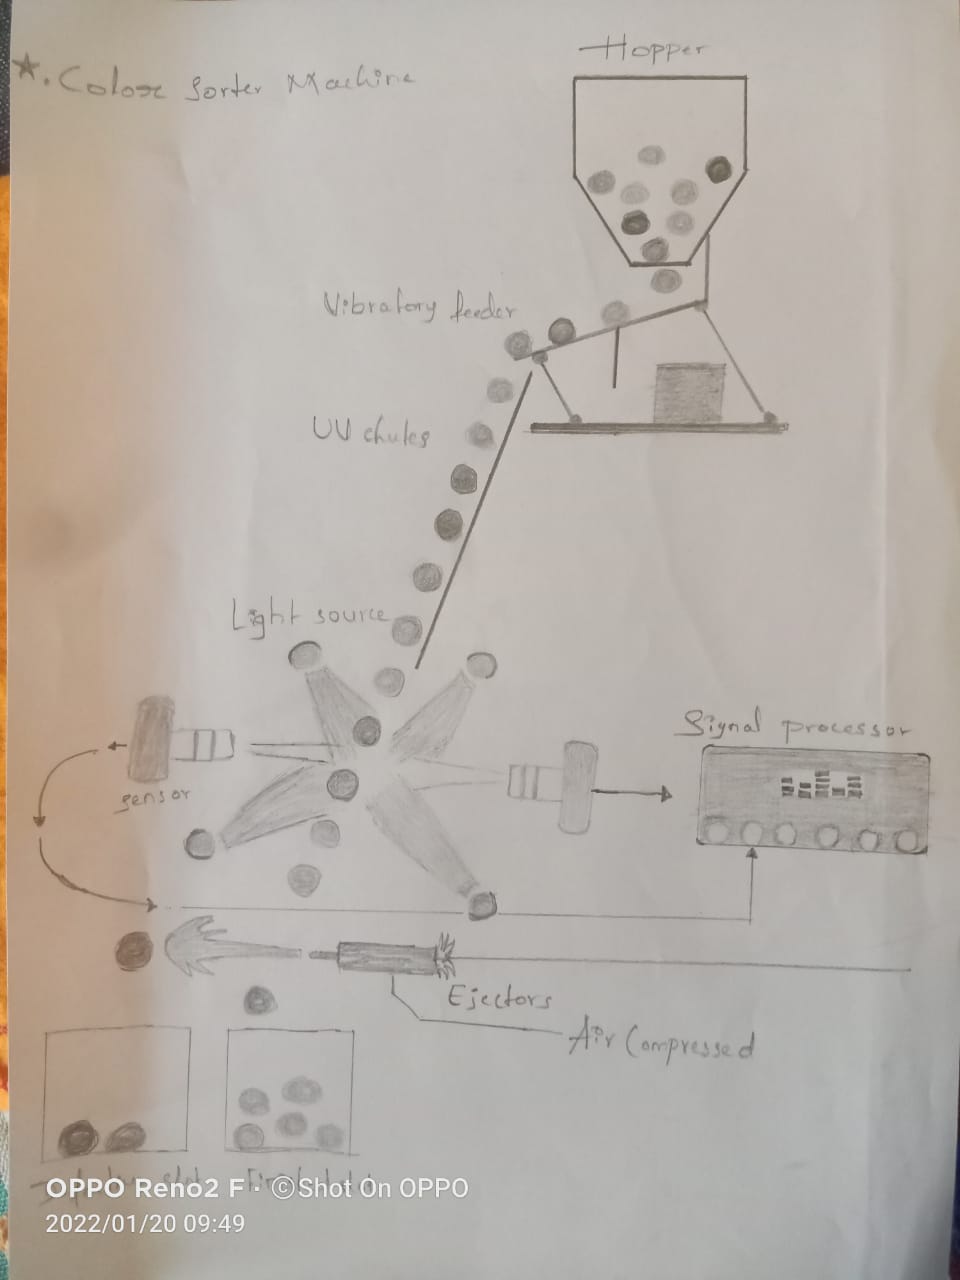 ★. Color Sorter Machine
Hopper
Vibratory feeder
UV chutes
Light source
Signal processor
sensor
Ejectors
Air Compressed
OPPO Reno2 F · ©Shot On OPPO
2022/01/20 09:49